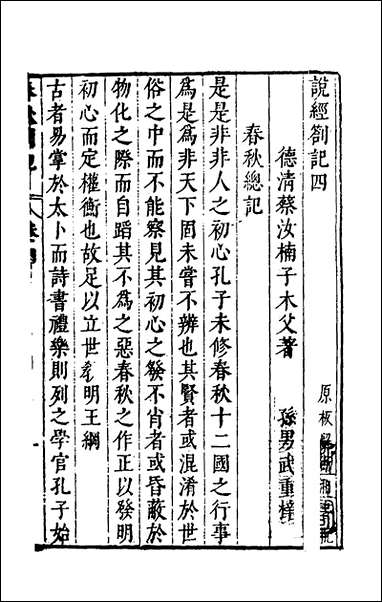 說經劄記四
原板
德清蔡汝楠子木父著
孫男武重
春秋總記
是是非非人之初心孔子未修春秋十二國之行事
為是為非天下固未嘗不辨也其賢者或混淆於世
俗之中而不能察見其初心之發不肖者或昏蔽於
物化之際而自蹈其不為之惡春秋之作正以發明
初心而定權衡也故足以立世 明王綱
古者易掌於太卜而詩書禮樂則列之學官孔子始